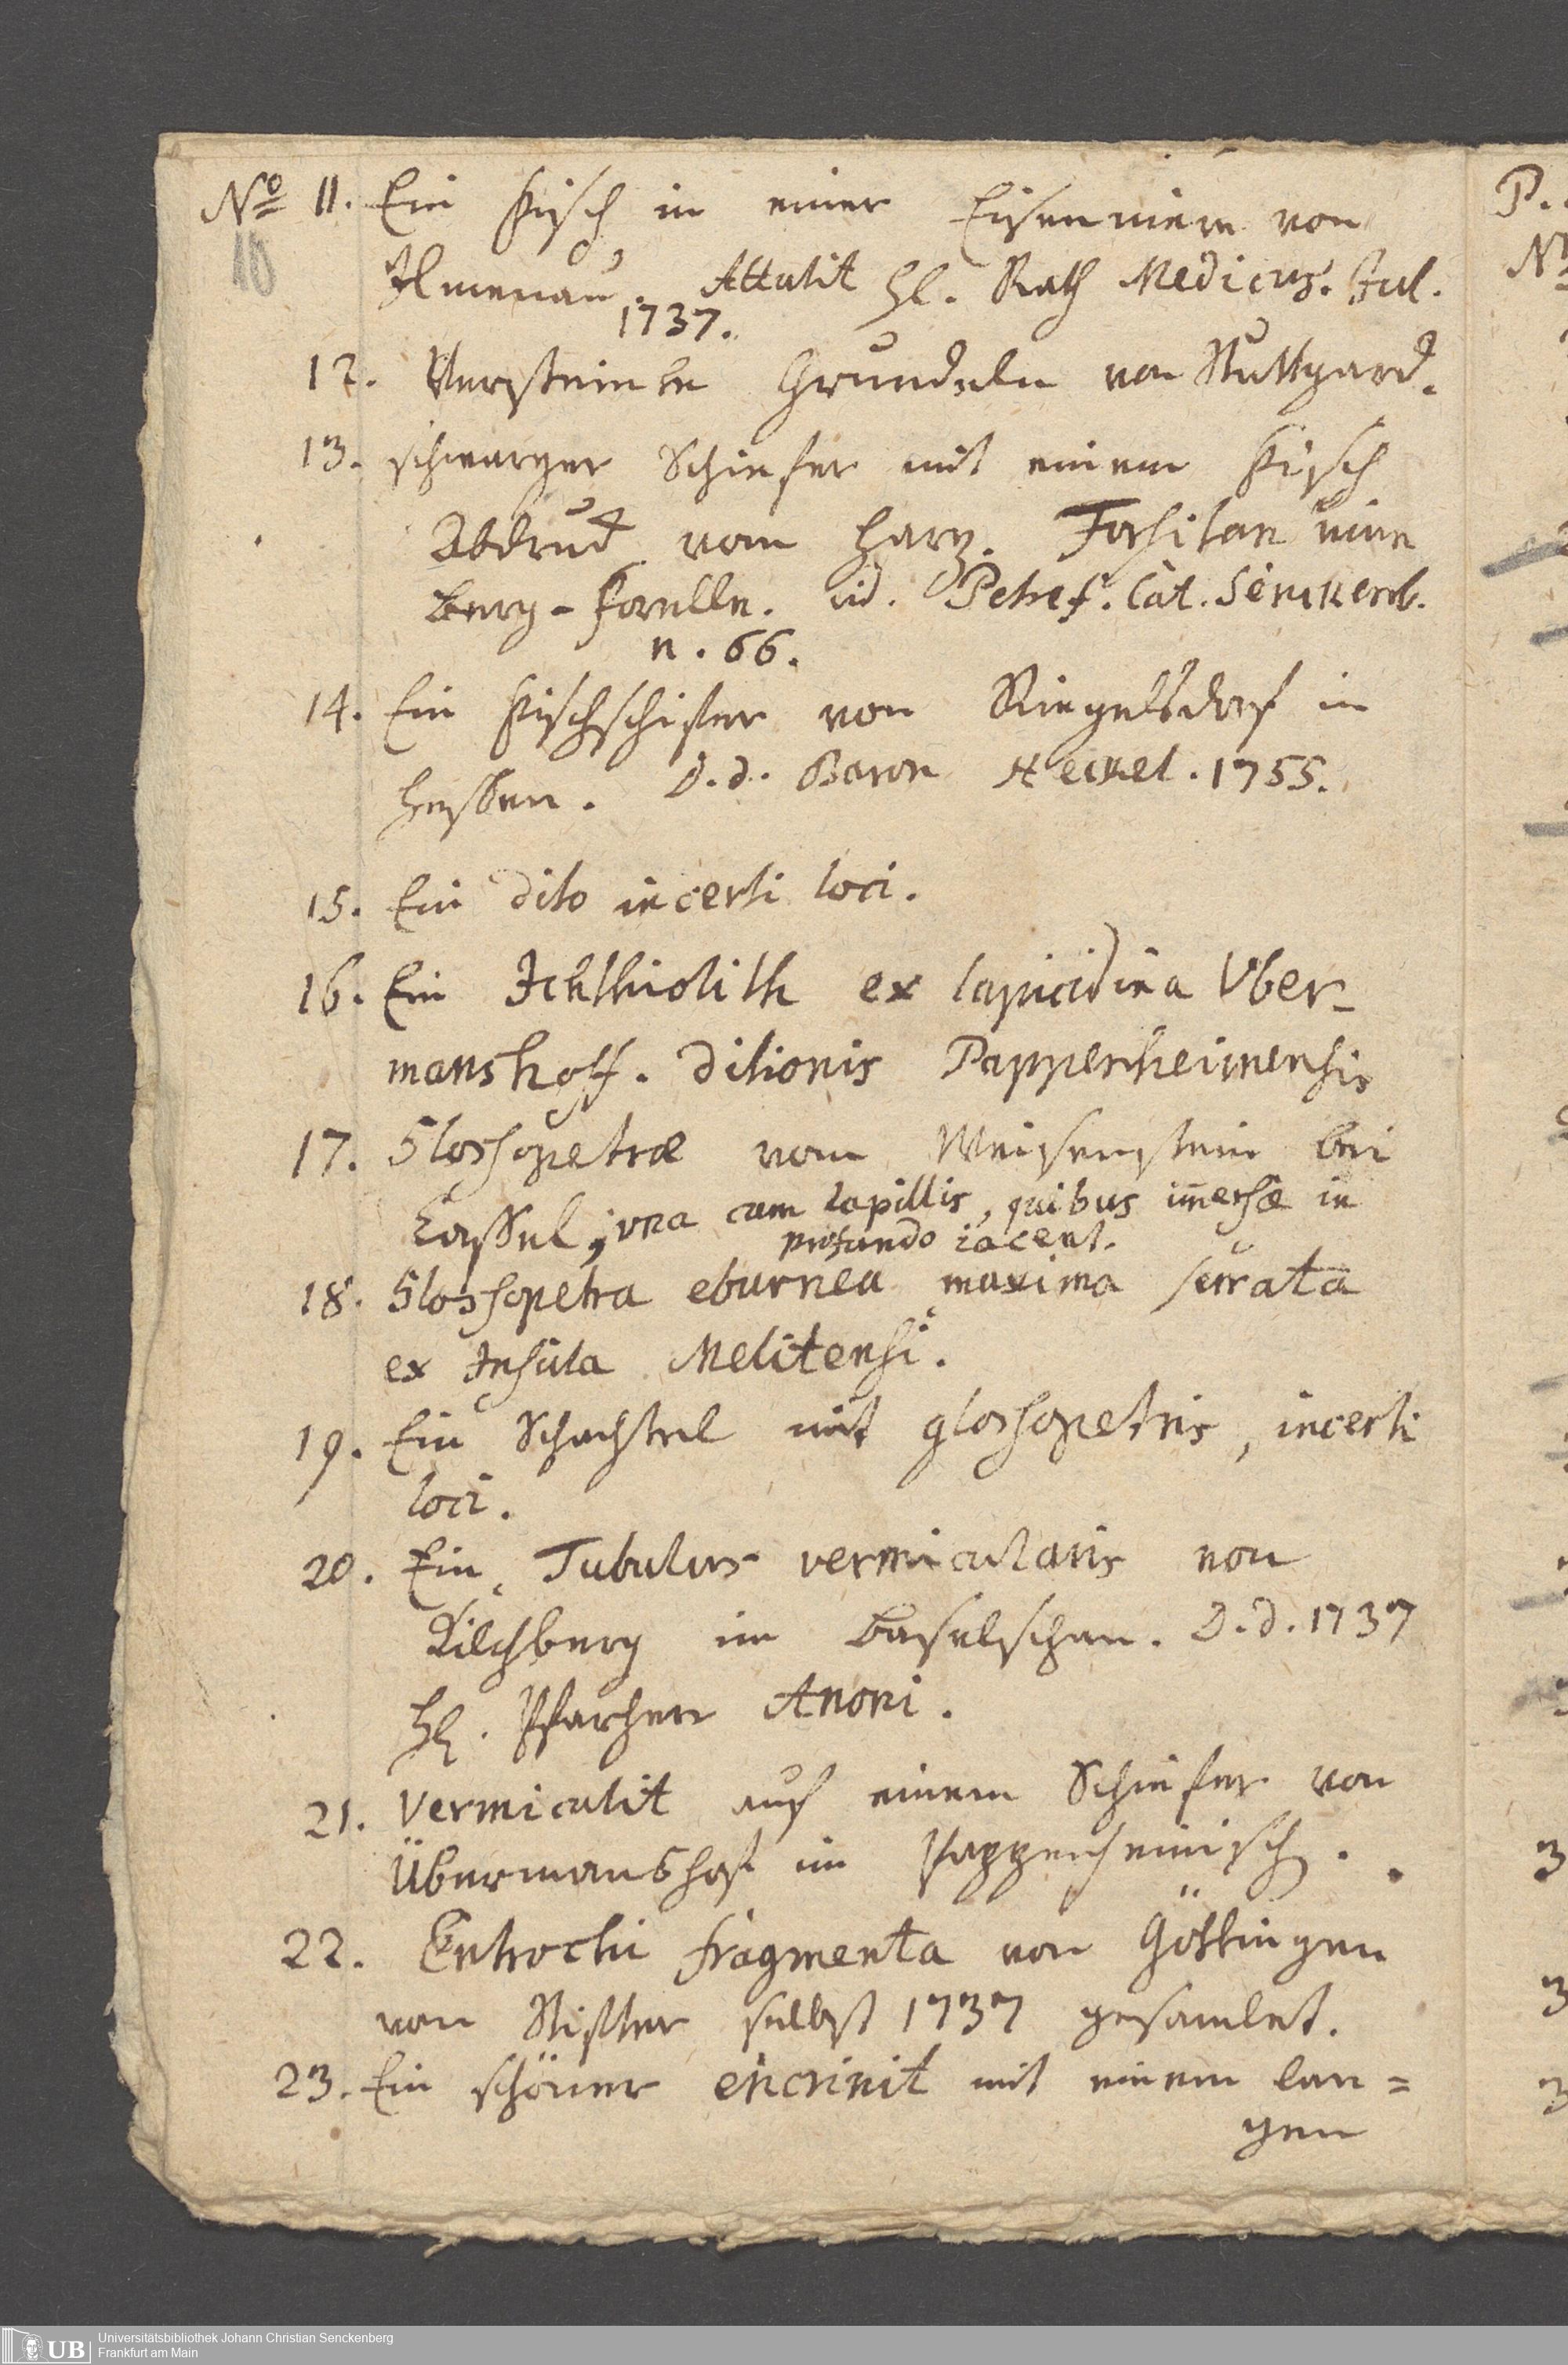 No 11. Ein Fisch in einer Eisenniere von
10
Ilmenau. Attulit Hl. Rath Medicus. Jul.
1737.
12. Versteinte Grundeln von Stuttgard.
13. schwarzer Schiefer mit einem Fisch
Abdruck vom Harz. Forsitan eine
Berg-Forelle. vid. Petref. Cat. Senckenb.
n. 66.
14. Ein Fischschifer von Riegelsdorf in
Hessen. D.d. Baron Heckel. 1755.
15. Ein dito incerti loci.
16. Ein Ichthiolith ex lapicidina Vber-
manshoff. ditionis Pappenheimensis
17. Glossopetræ vom Weisenstein bei
Cassel, vna cum lapillis, quibus im̄ersæ in
profundo iacent.
18. Glossopetra eburnea maxima serrata
ex Insula Melitensi.
19. Ein Schachtel mit glossopetris, incerti
loci.
20. Ein Tubulus vermicularis von
Kilchberg im Baselschen. D.d. 1737
Hl. Pfarherr Anoni.
21. Vermiculit auf einem Schiefer von
Übermanshof im Pappenheimisch.
22. Entrochi fragmenta von Göttingen
von Stifter selbst 1737 gesamlet.
23. Ein schöner encrinit mit einem lan=
gen
P.
N
3
3
3
UB
Universitätsbibliothek Johann Christian Senckenberg
Frankfurt am Main